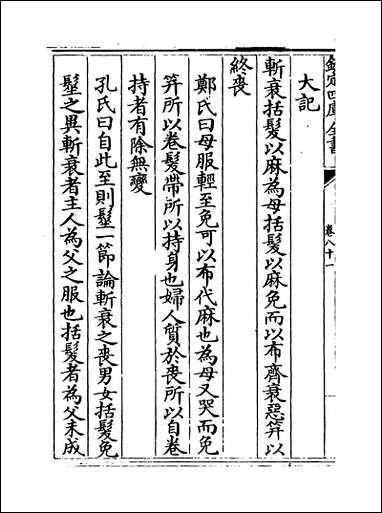 欽定四庫全書
卷八十一
大記
斬衰括髮以麻為母括髮以麻免而以布齊衰惡笄以
終喪
鄭氏曰母服輕至免可以布代麻也為母又哭而免
笄所以卷髮帶所以持身也婦人質於喪所以自卷
持者有除無變
孔氏曰自此至則髽一節論斬衰之喪男女括髮免
髽之異斬衰者主人為父之服也括髮者為父未成